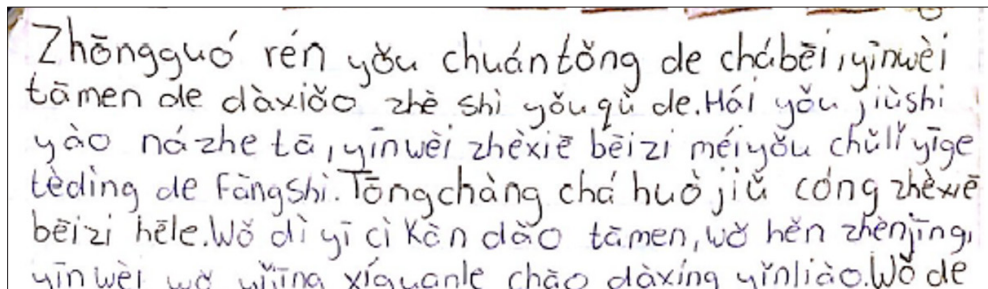 Zhōngguó rén yǒu chuántǒng de chábēi, yīnwèi
tāmen de dàxiǎo zhè shì yǒuqù de. Hái yǒu jiùshi
yào názhe tā, yīnwèi zhèxiē bēizi méiyǒu chǔlǐ yīge
tèdìng de Fāngshì. Tōngchàng chá huò jiǔ cóng zhèxiē
bēizi hēle. Wǒ dì yī cì Kàn dǎo tāmen, wǒ hěn zhènjīng,
yīnwèi wǒ yǐjīng xíguanle chāo dàxíng yǐnliào. Wǒ de